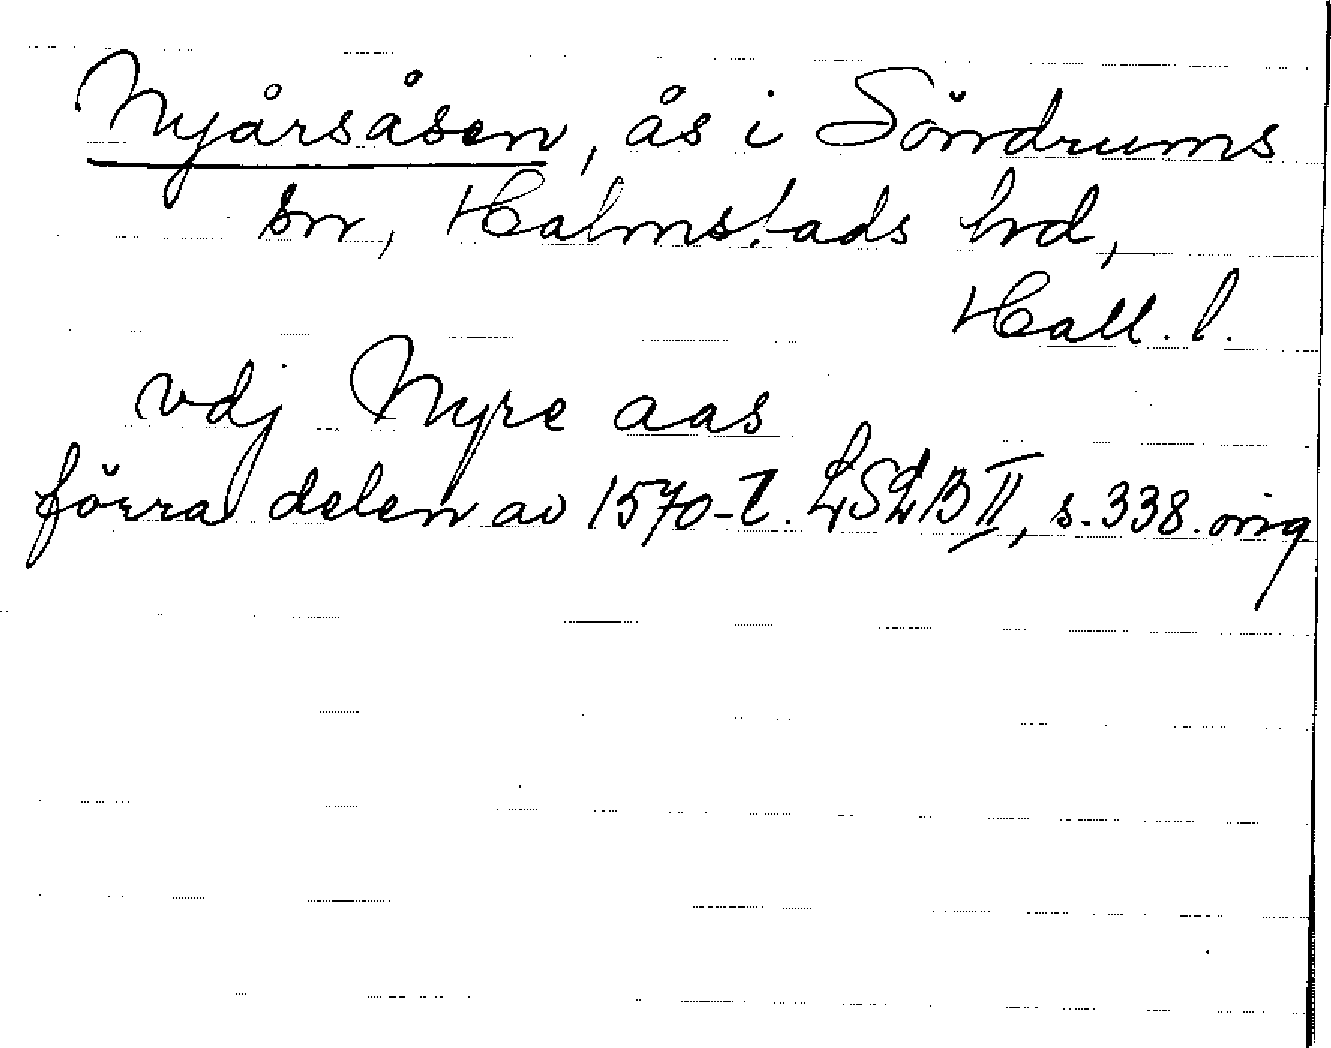 Nyårsåsen, ås i Söndrums
sn, Halmstads hrd,
Hall. l.
vdj Nyre aas
förra delen av 1570-t. LSLB II, s. 338. orig